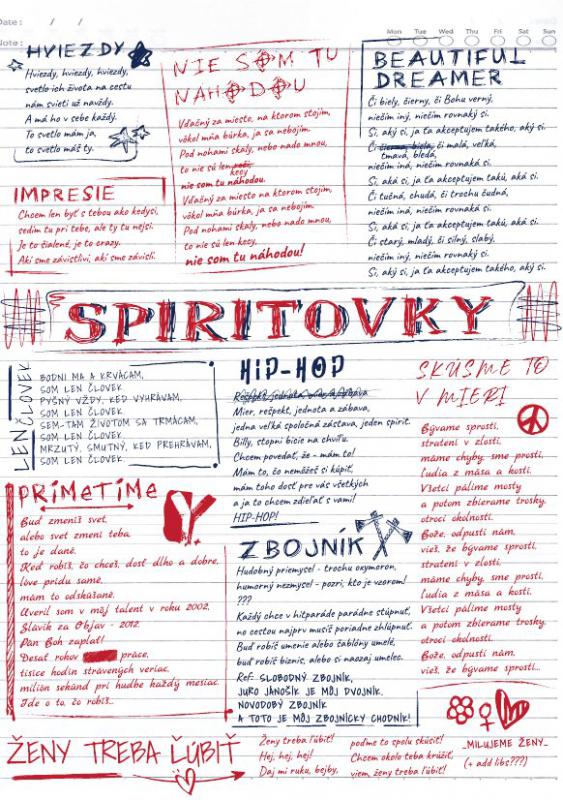 Date: / /
Note:
Mon Tue Wed Thu Fri Sat Sun
HVIEZDY
Hviezdy, hviezdy, hviezdy,
svetlo ich života na cestu
nám svieti už navždy.
A má ho v sebe každý.
To svetlo mám ja,
to svetlo máš ty.
IMPRESIE
Chcem len byť s tebou ako kedysi,
sedím tu pri tebe, ale ty tu nejsi.
Je to šialené, je to crazy.
Akí sme závistliví, akí sme závislí.
NIE SOM TU
NÁHODOU
Vďačný za miesto, na ktorom stojím,
vôkol mňa búrka, ja sa nebojím.
Pod nohami skaly, nebo nado mnou,
to nie sú len
kecy
nie som tu náhodou.
Vďačný za miesto na ktorom stojím,
vôkol mňa búrka, ja sa nebojím.
Pod nohami skaly, nebo nado mnou,
to nie sú len kecy,
nie som tu náhodou!
BEAUTIFUL
DREAMER
Či biely, čierny, či Bohu verný,
niečím iný, niečím rovnaký si.
Si, aký si, ja ťa akceptujem takého, aký si.
Či čierna, biela, či malá, veľká,
tmavá, bledá,
niečím iná, niečím rovnaká si.
Si, aká si, ja ťa akceptujem takú, aká si.
Či tučná, chudá, či trochu čudná,
niečím iná, niečím rovnaká si.
Si, aká si, ja ťa akceptujem takú, aká si.
Či starý, mladý, či silný, slabý,
niečím iný, niečím rovnaký si.
Si, aký si, ja ťa akceptujem takého, aký si.
SPIRITOVKY
LEN ČLOVEK
BODNI MA A KRVÁCAM,
SOM LEN ČLOVEK
PYŠNÝ VŽDY, KEĎ VYHRÁVAM,
SOM LEN ČLOVEK
SEM-TAM ŽIVOTOM SA TRMÁCAM,
SOM LEN ČLOVEK
MRZUTÝ, SMUTNÝ, KEĎ PREHRÁVAM,
SOM LEN ČLOVEK
PRÍMETÍME
Buď zmeníš svet,
alebo svet zmení teba,
to je dané.
Keď robíš, čo chceš, dosť dlho a dobre,
love prídu samé,
mám to odskúšané.
Uveril som v môj talent v roku 2002,
Slávik za Objav - 2012.
Pán Boh zaplať!
Desať rokov
práce,
tisíce hodín strávených veriac,
milión sekúnd pri hudbe každý mesiac.
Ide o to, čo robíš...
HIP-HOP
Rešpekt, jednota, mier a zábava
Mier, rešpekt, jednota a zábava,
jedna veľká spoločná zástava, jeden spirit.
Billy, stopni bicie na chvíľu.
Chcem povedať, že - mám to!
Mám to, čo nemôžeš si kúpiť,
mám toho dosť pre vás všetkých
a ja to chcem zdieľať s vami!
HIP-HOP!
ZBOJNÍK
Hudobný priemysel - trochu oxymoron,
humorný nezmysel - pozri, kto je vzorom!
???
Každý chce v hitparáde parádne stúpnuť,
no cestou najprv musíš poriadne zhlúpnuť.
Buď robíš umenie alebo šablóny umelé,
buď robíš biznis, alebo si naozaj umelec.
Ref: SLOBODNÝ ZBOJNÍK,
JURO JÁNOŠÍK JE MÔJ DVOJNÍK.
NOVODOBÝ ZBOJNÍK
A TOTO JE MÔJ ZBOJNÍCKY CHODNÍK!
SKÚSME TO
V MIERI
Bývame sprostí,
stratení v zlosti,
máme chyby, sme prostí,
ľudia z mäsa a kostí.
Všetci pálime mosty
a potom zbierame trosky,
otroci okolností.
Bože, odpusti nám,
vieš, že bývame sprostí,
stratení v zlosti,
máme chyby, sme prostí,
ľudia z mäsa a kostí.
Všetci pálime mosty
a potom zbierame trosky,
otroci okolností.
Bože, odpusti nám,
vieš, že bývame sprostí...
ŽENY TREBA ĽÚBIŤ
Ženy treba ľúbiť!
Hej, hej, hej!
Daj mi ruku, bejby,
poďme to spolu skúsiť!
Chcem okolo teba krúžiť,
viem, ženy treba ľúbiť!
_MILUJEME ŽENY_
(+ add libs???)